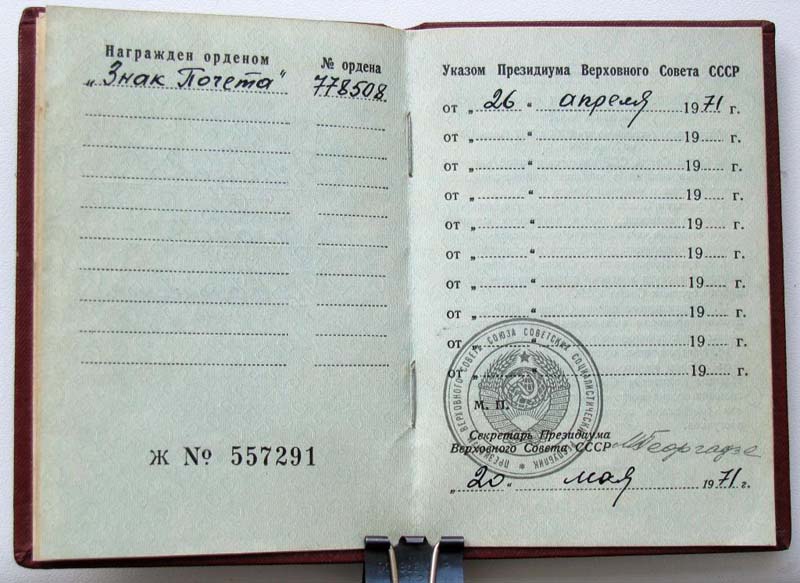 Награжден орденом
№ ордена
„Знак Почета"
778508
Ж № 557291
Указом Президиума Верховного Совета СССР
от „26" апреля 1971 г.
от „ " 19 г.
от „ " 19 г.
от „ " 19 г.
от „ " 19 г.
от „ " 19 г.
от „ " 19 г.
от „ " 19 г.
от „ " 19 г.
от „ " 19 г.
ПРЕЗИДИУМ ВЕРХОВНОГО СОВЕТА СОЮЗА СОВЕТСКИХ СОЦИАЛИСТИЧЕСКИХ РЕСПУБЛИК
М. П.
Секретарь Президиума
Верховного Совета СССР
МГеоргадзе
„20" мая 1971 г.